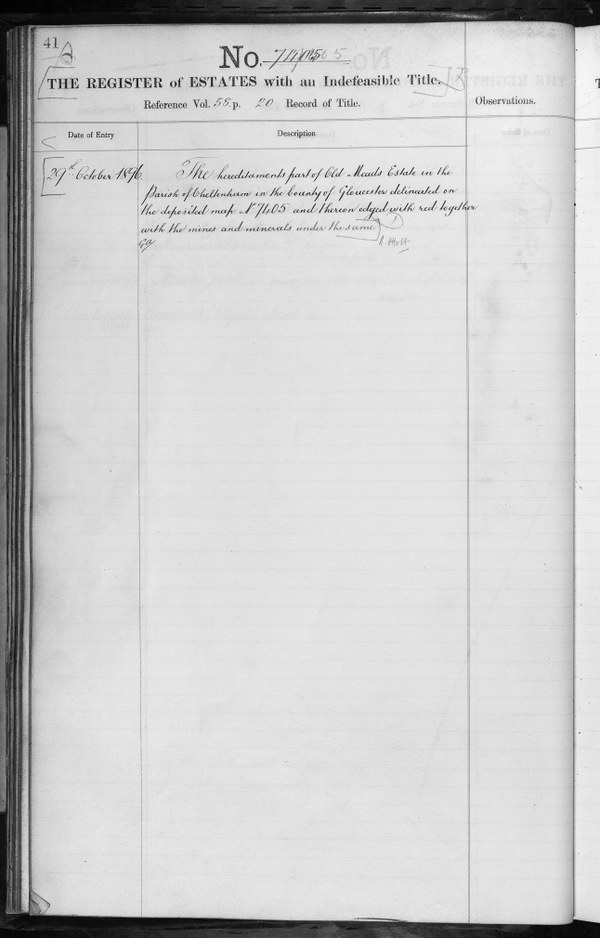 41
No. 71405
THE REGISTER of ESTATES with an Indefeasible Title.
Reference Vol. 55. p. 20 Record of Title.
Observations.
Date of Entry
Description
29th October 1896
The hereditaments part of Old Meads Estate in the
Parish of Cheltenham in the County of Gloucester delineated on
the deposited map No 71405 and thereon edged with red together
with the mines and minerals under the same.